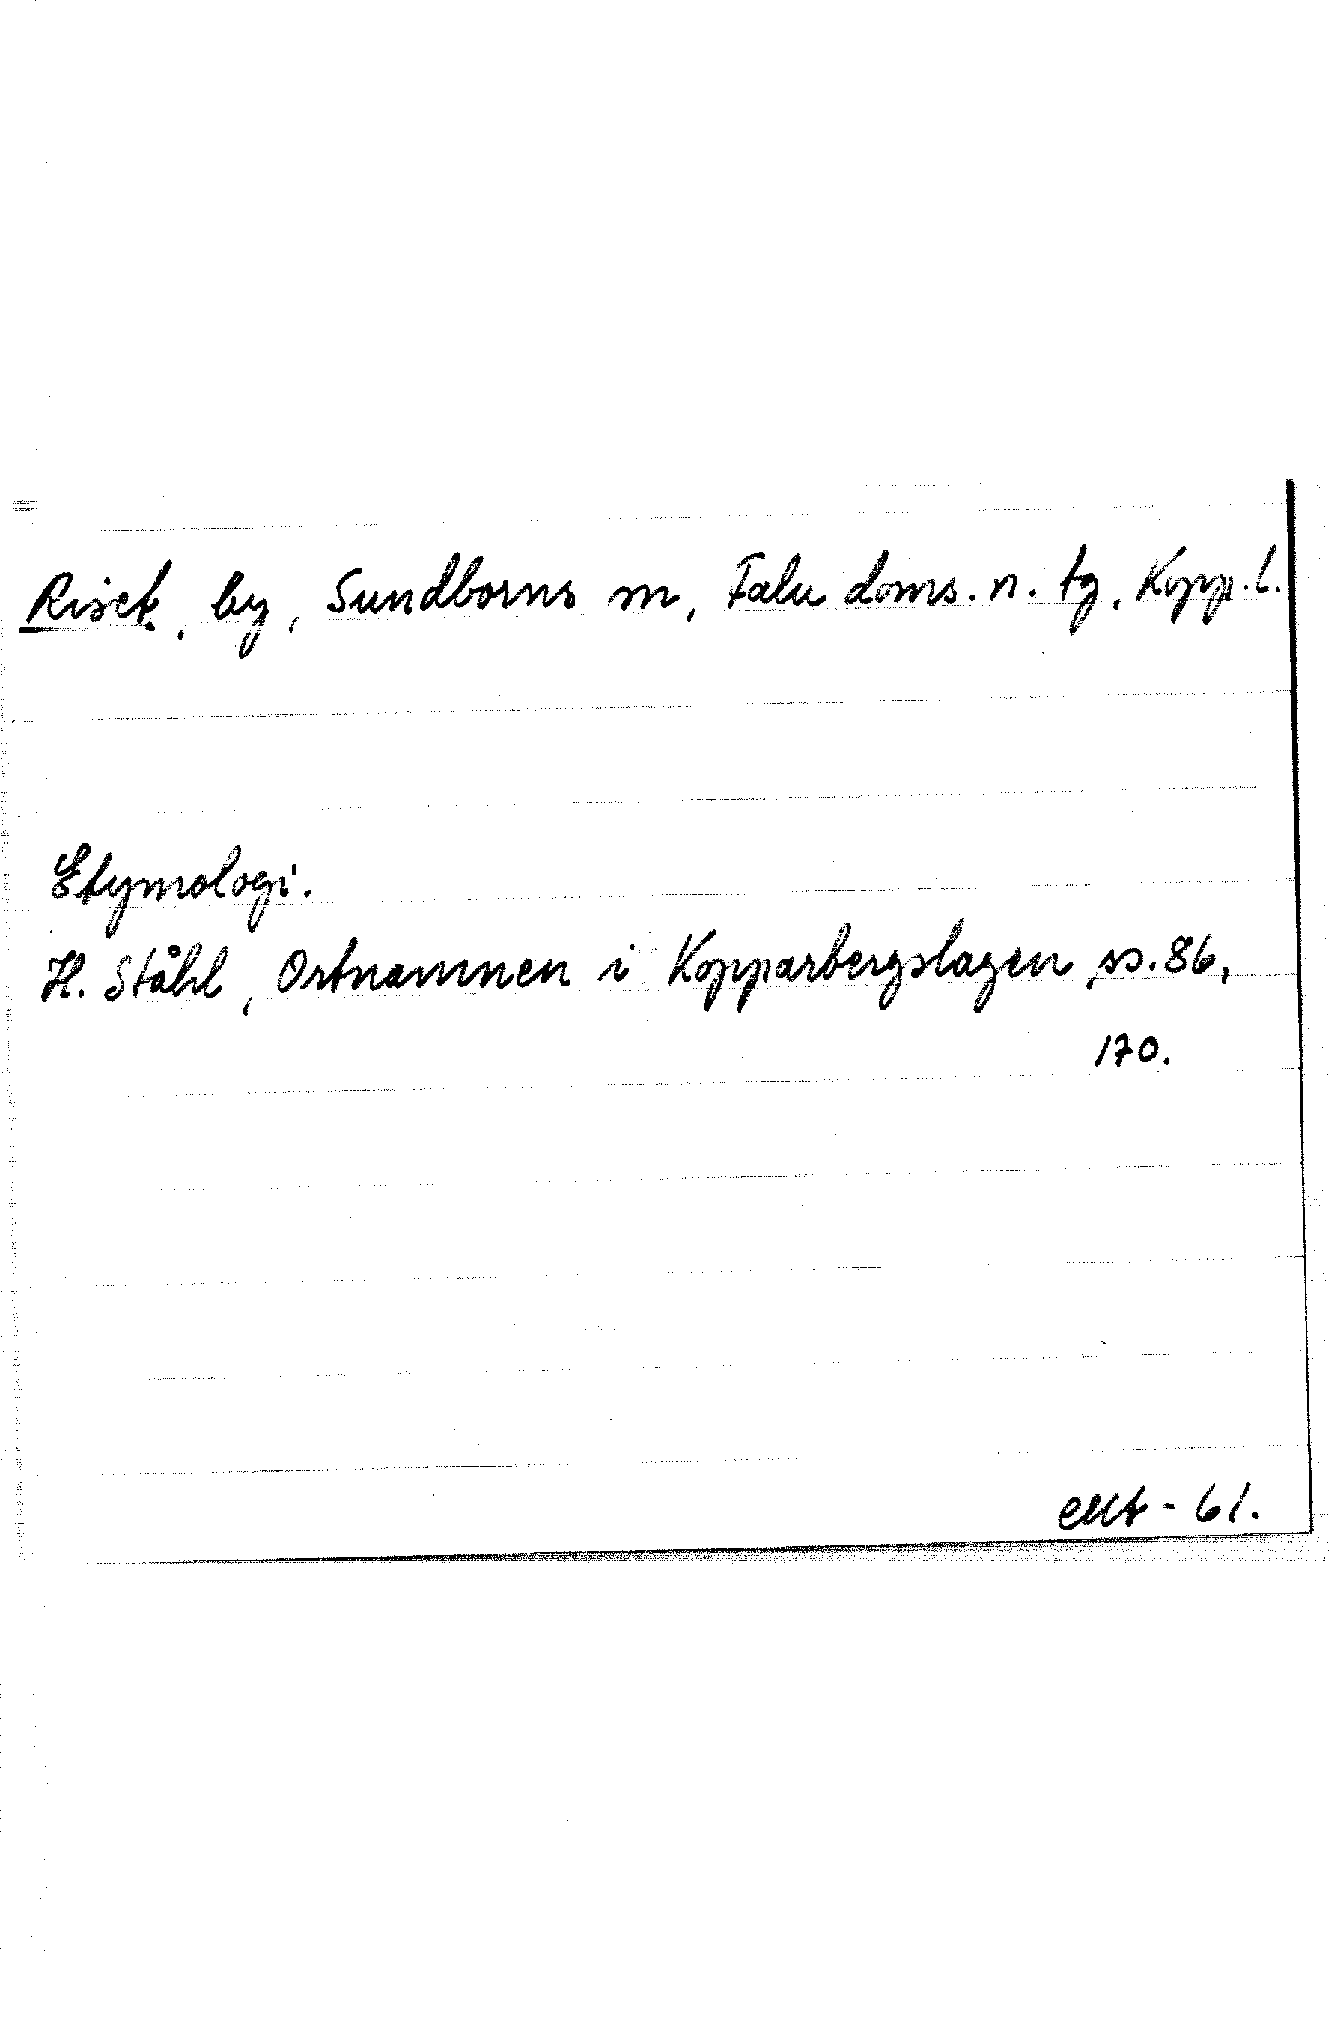 Riset, by, Sundborns sn, Falu doms. n. tg, Kopp. l.
Etymologi.
H. Ståhl, Ortnamnen i Kopparbergslagen, ss. 86,
170.
- 61.